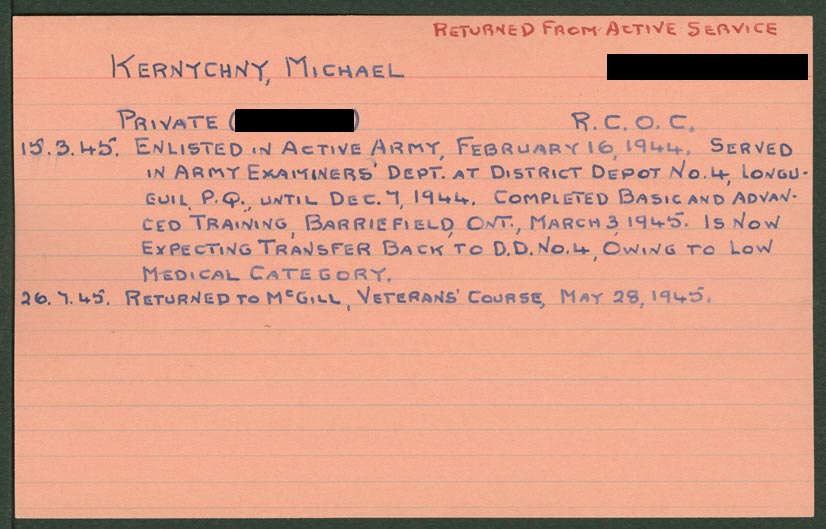 RETURNED FROM ACTIVE SERVICE
KERNYCHNY, MICHAEL
PRIVATE ( ) R.C.O.C.
15.3.45. ENLISTED IN ACTIVE ARMY, FEBRUARY 16, 1944. SERVED
IN ARMY EXAMINERS' DEPT. AT DISTRICT DEPOT NO. 4, LONGU-
GUIL, P.Q., UNTIL DEC. 7, 1944. COMPLETED BASIC AND ADVAN-
CED TRAINING, BARRIEFIELD, ONT., MARCH 3, 1945. IS NOW
EXPECTING TRANSFER BACK TO D.D. NO. 4, OWING TO LOW
MEDICAL CATEGORY.
26.7.45. RETURNED TO McGILL, VETERANS' COURSE, MAY 28, 1945.